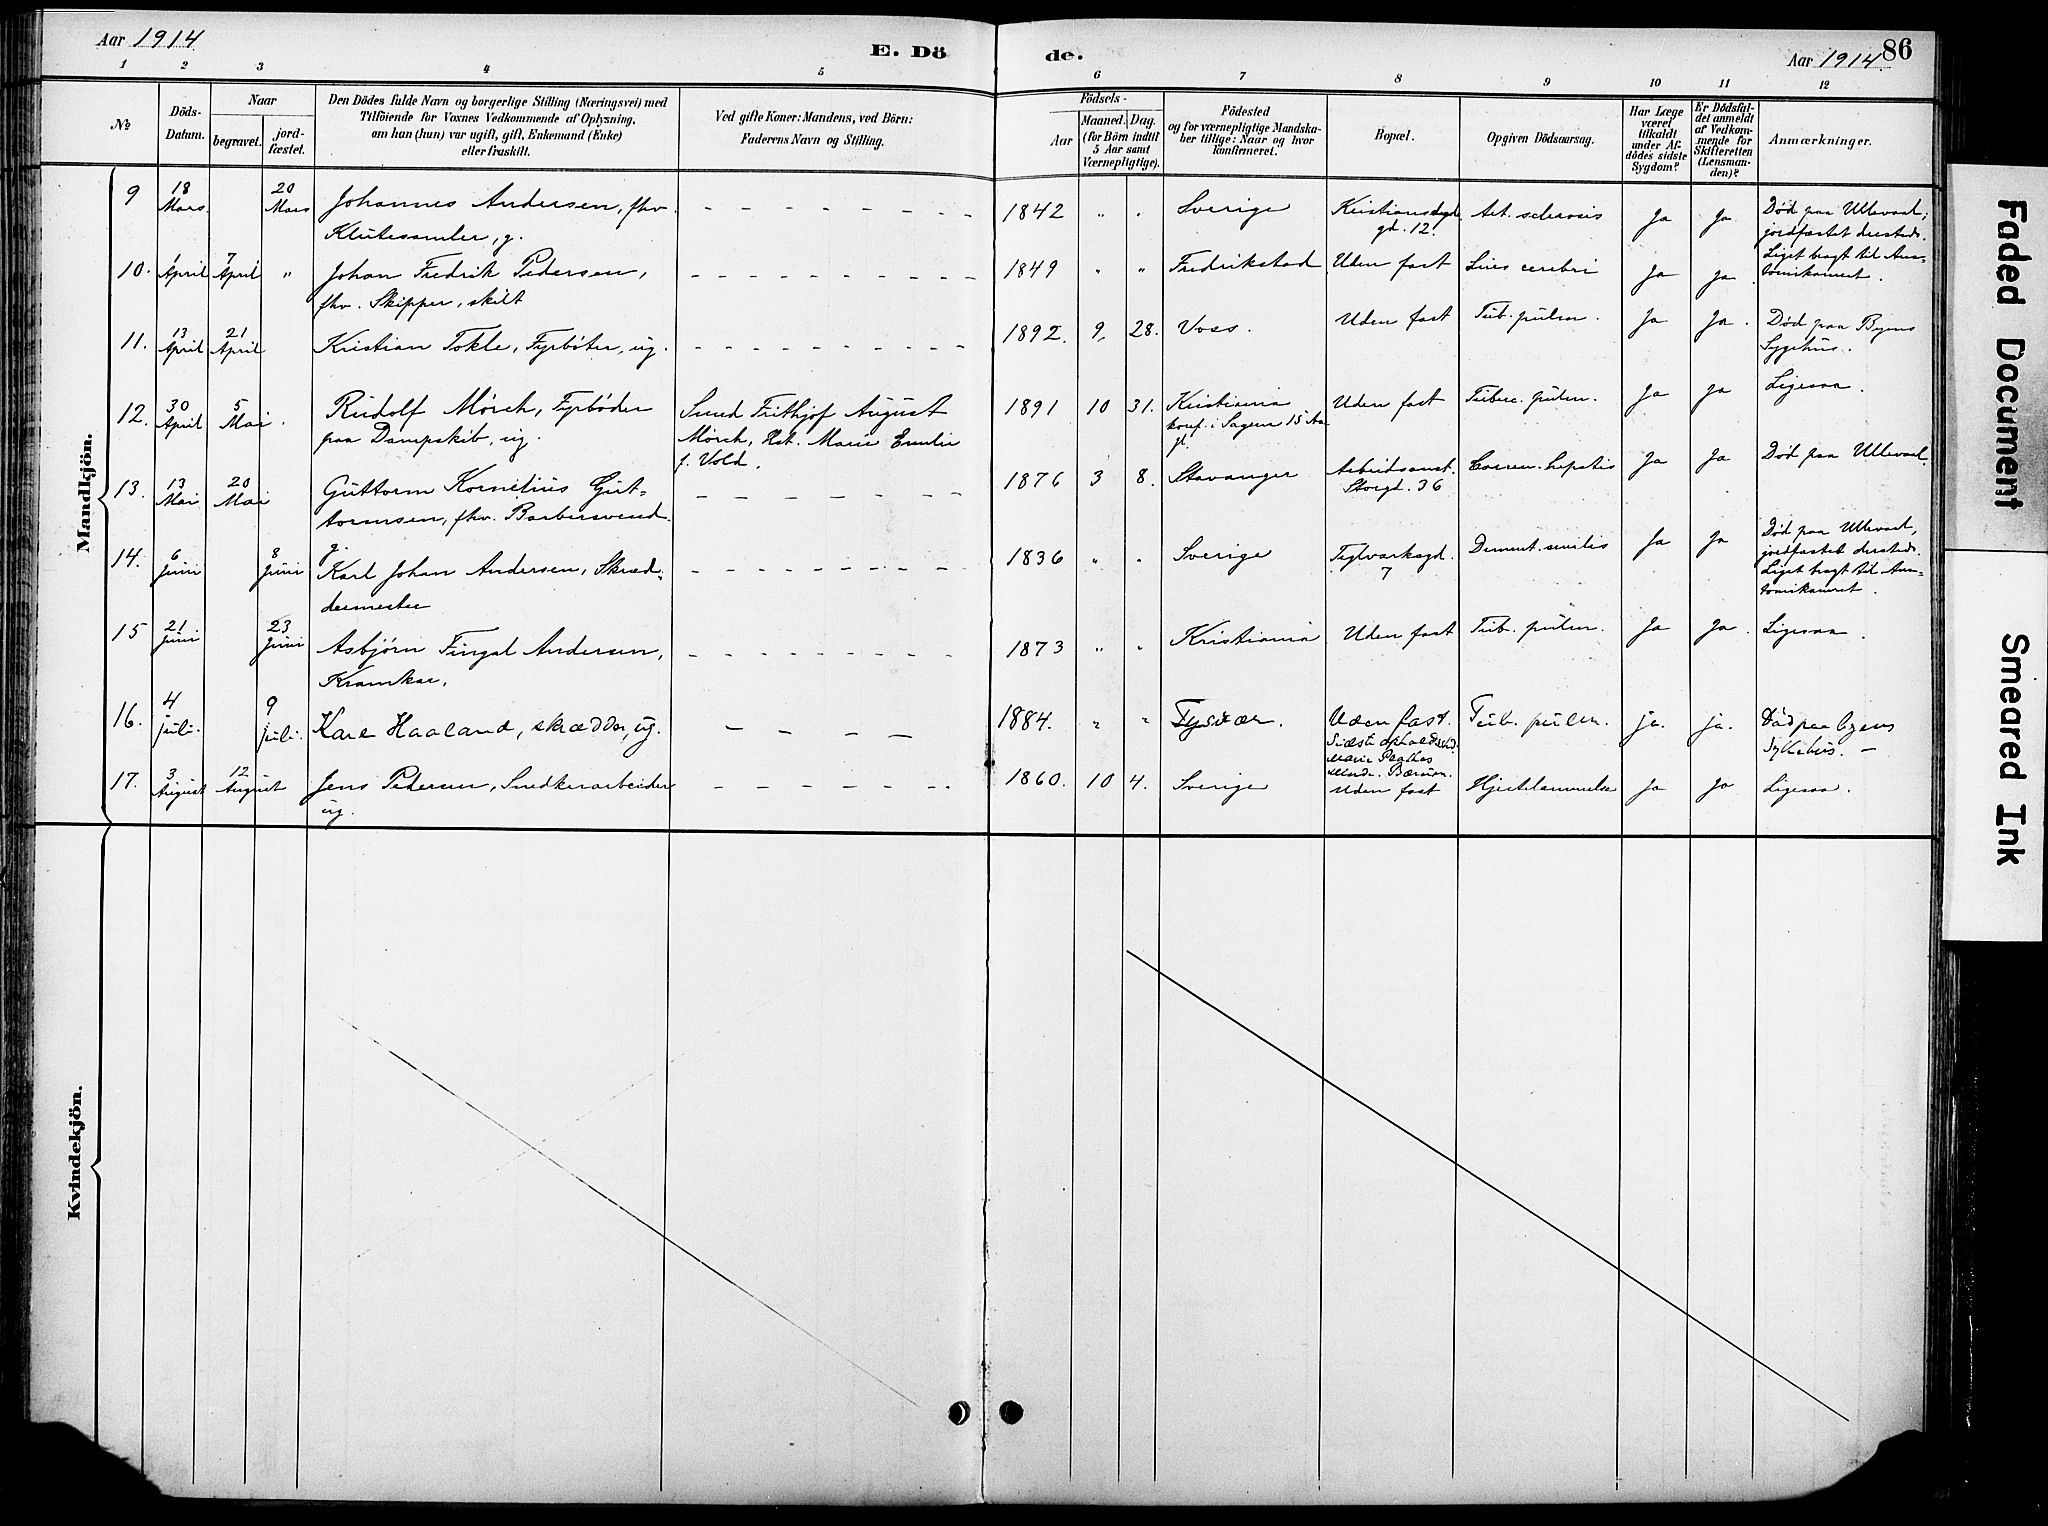 Aar 1914
E. Dö
de.
Aar 1914.
86
1 2 3 4 5 6 7 8 9 10 11 12
№
Döds-
Datum.
Naar
begravet.
jord-
fæstet.
Den Dödes fulde Navn og borgerlige Stilling (Næringsvei) med
Tilföiende for Voxnes Vedkommende af Oplysning,
om han (hun) var ugift, gift, Enkemand (Enke)
eller fraskilt.
Ved gifte Koner: Mandens, ved Börn:
Faderens Navn og Stilling.
Födsels-
Aar
Maaned. Dag.
(for Börn indtil
5 Aar samt
Værnepligtige).
Födested
og for værnepligtige Mandska-
ber tillige: Naar og hvor
konfirmeret.
Bopæl.
Opgiven Dödsaarsag.
Har Læge
været
tilkaldt
under Af-
dödes sidste
Sygdom?
Er Dödsfal-
det anmeldt
af Vedkom-
mende for
Skifteretten
(Lensman-
den)?
Anmærkninger.
Mandkjön.
9
18
Mars.
20
Mars
Johannes Andersen, fhv.
Klutesamler, g.
1842 " "
Sverige
Kristiansbygd.
gd. 12.
Art. sclerosis
Ja
Ja
Død paa Ullevaal,
jordfæstet dersteds.
Liget bragt til Ana-
tomikamret.
10.
1
April
7
April
"
Johan Fredrik Pedersen,
fhv. Skipper, skilt
1849 " "
Fredrikstad
Uden fast
Lues cerebri
Ja
Ja
11.
13
April
21
April
Kristian Tokle, Fyrbøter, ug.
1892. 9, 28.
Voss.
Uden fast
Tub. pulm.
Ja
Ja.
Død paa Byens
Sygehus.
12.
30
April
5
Mai.
Rudolf Mørch, Fyrbøder
paa Dampskib, ug.
Smed Frithjof August
Mørch, Hst. Marie Emilie
f. Vold.
1891 10 31.
Kristiania
konf. i Sagene 15 Aar
gl.
Uden fast
Tuberc. pulm.
Ja
Ja
Ligesaa.
13.
13
Mai
20
Mai
Guttorm Kornelius Gut-
tormsen, fhv. Barbersvend.
g.
1876 3 8.
Stavanger
Arbeidsanst.
Storgd. 36
hepatis
Ja
Ja
Død paa Ullevaal.
14.
6
Juni
8
Juni
Karl Johan Andersen, Skræd-
dermester
1836 " "
Sverige
Teglverksgd.
7
Dement. senilis
Ja
Ja
Død paa Ullevaal,
jordfæstet dersteds.
Liget bragt til Ana-
tomikamret.
15
21
Juni
23
Juni
Asbjørn Fingal Andersen,
Kramkar.
1873 " "
Kristiania
Uden fast
Tub. pulm.
Ja
Ja.
Ligesaa.
16.
4
juli.
9
juli.
Karl Haaland, skrædder, ug.
1884. " "
Tysvær.
Uden fast.
Sidste opholdssted.
Marie Plathes
Minde. Bærum.
Tub. pulm.
ja.
ja.
Død paa byens
sykehus. —
17.
3
August
12
August
Jens Pedersen, Snedkerarbeider
ug.
1860. 10 4.
Sverige
Uden fast
Hjertelammelse
Ja
Ja
Ligesaa.
Kvindekjön.
Faded Document
Smeared Ink